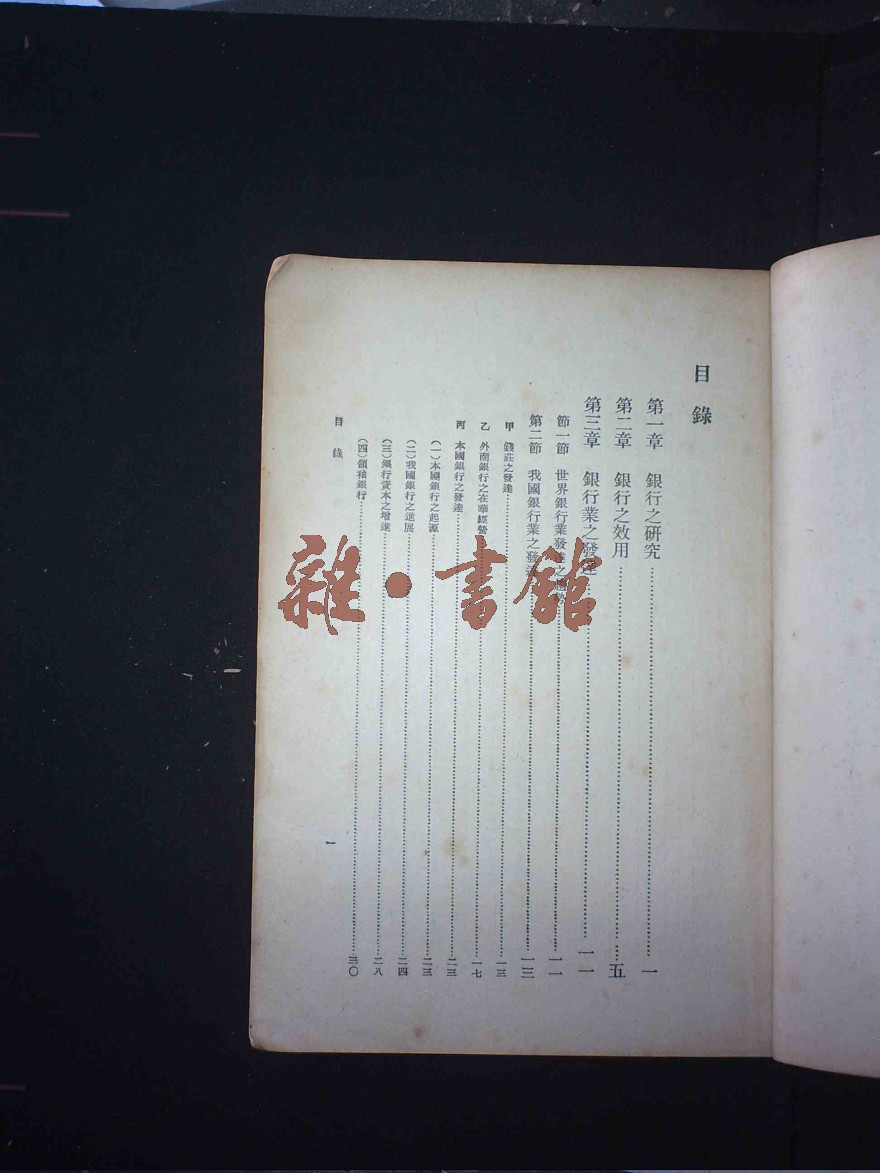 目錄
第一章 銀行之研究 一
第二章 銀行之效用 五
第三章 銀行業之發達 一一
節一節 世界銀行業發達之 一一
第二節 我國銀行業之發達 一三
甲 錢莊之發達 一三
乙 外商銀行之在華經營 一七
丙 本國銀行之發達 二三
(一)本國銀行之起源 二三
(二)我國銀行之進展 二四
(三)銀行資本之增進 二八
(四)領袖銀行 三〇
目錄
一
雜·書館